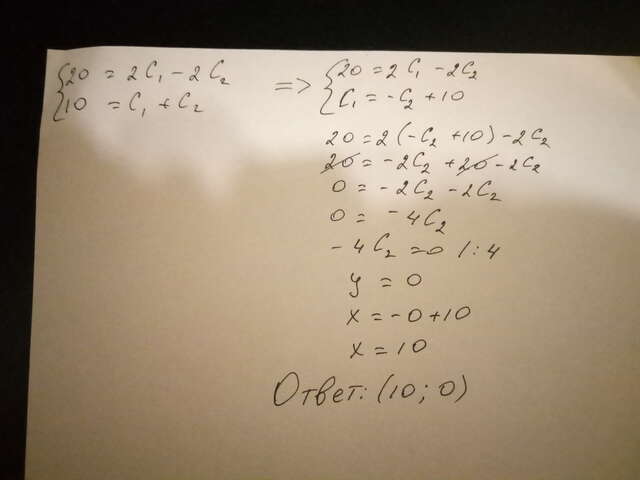 20 = 2C₁ - 2C₂ => 20 = 2C₁ - 2C₂
10 = C₁ + C₂ C₁ = -C₂ + 10
20 = 2(-C₂ + 10) - 2C₂
20 = -2C₂ + 20 - 2C₂
0 = -2C₂ - 2C₂
0 = -4C₂
-4C₂ = 0 /: 4
y = 0
x = -0 + 10
x = 10
Ответ: (10; 0)